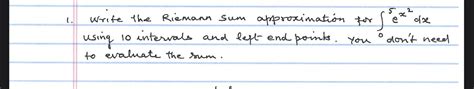 1. Write the Riemann Sum approximation for ∫₀⁵ eˣ² dx
using 10 intervals and left-end points. You don't need
to evaluate the sum.